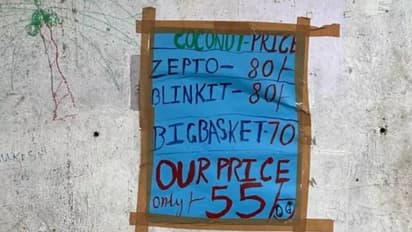 COCONUT-PRICE
ZEPTO- 80/-
BLINKIT- 80/-
BIGBASKET-70
OUR PRICE
only/- 55/-